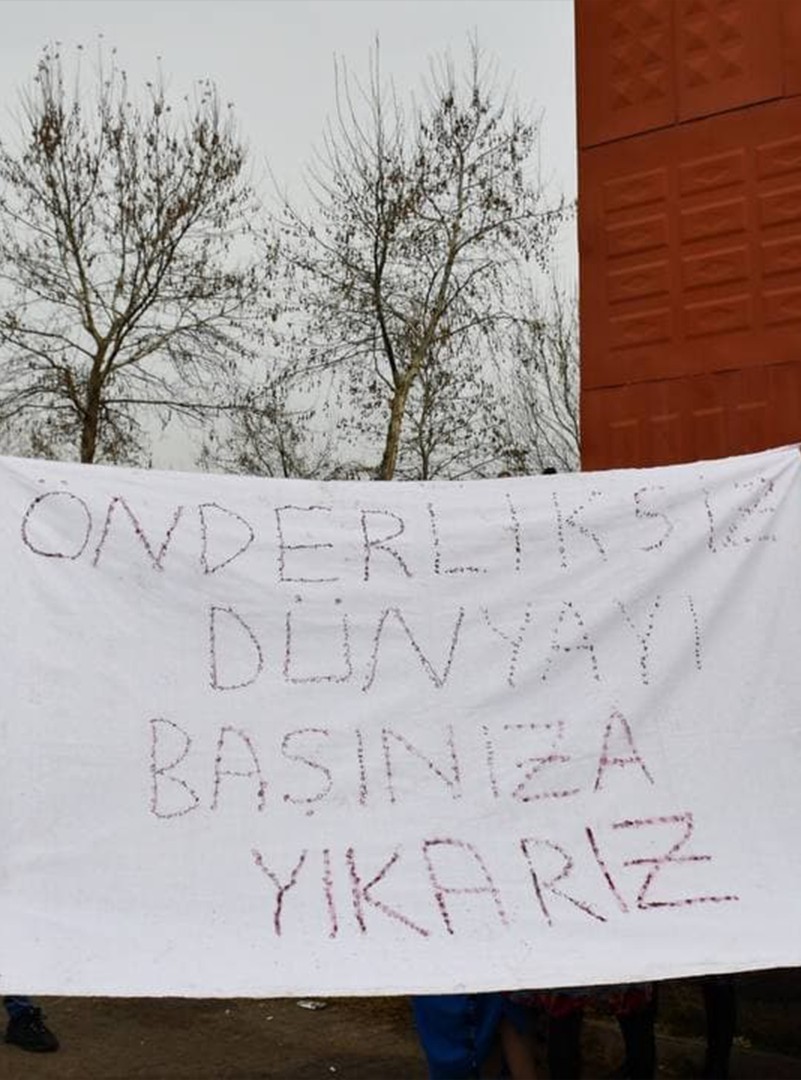 ÖNDERLİKSİZ
DÜNYAYI
BAŞINIZA
YIKARIZ